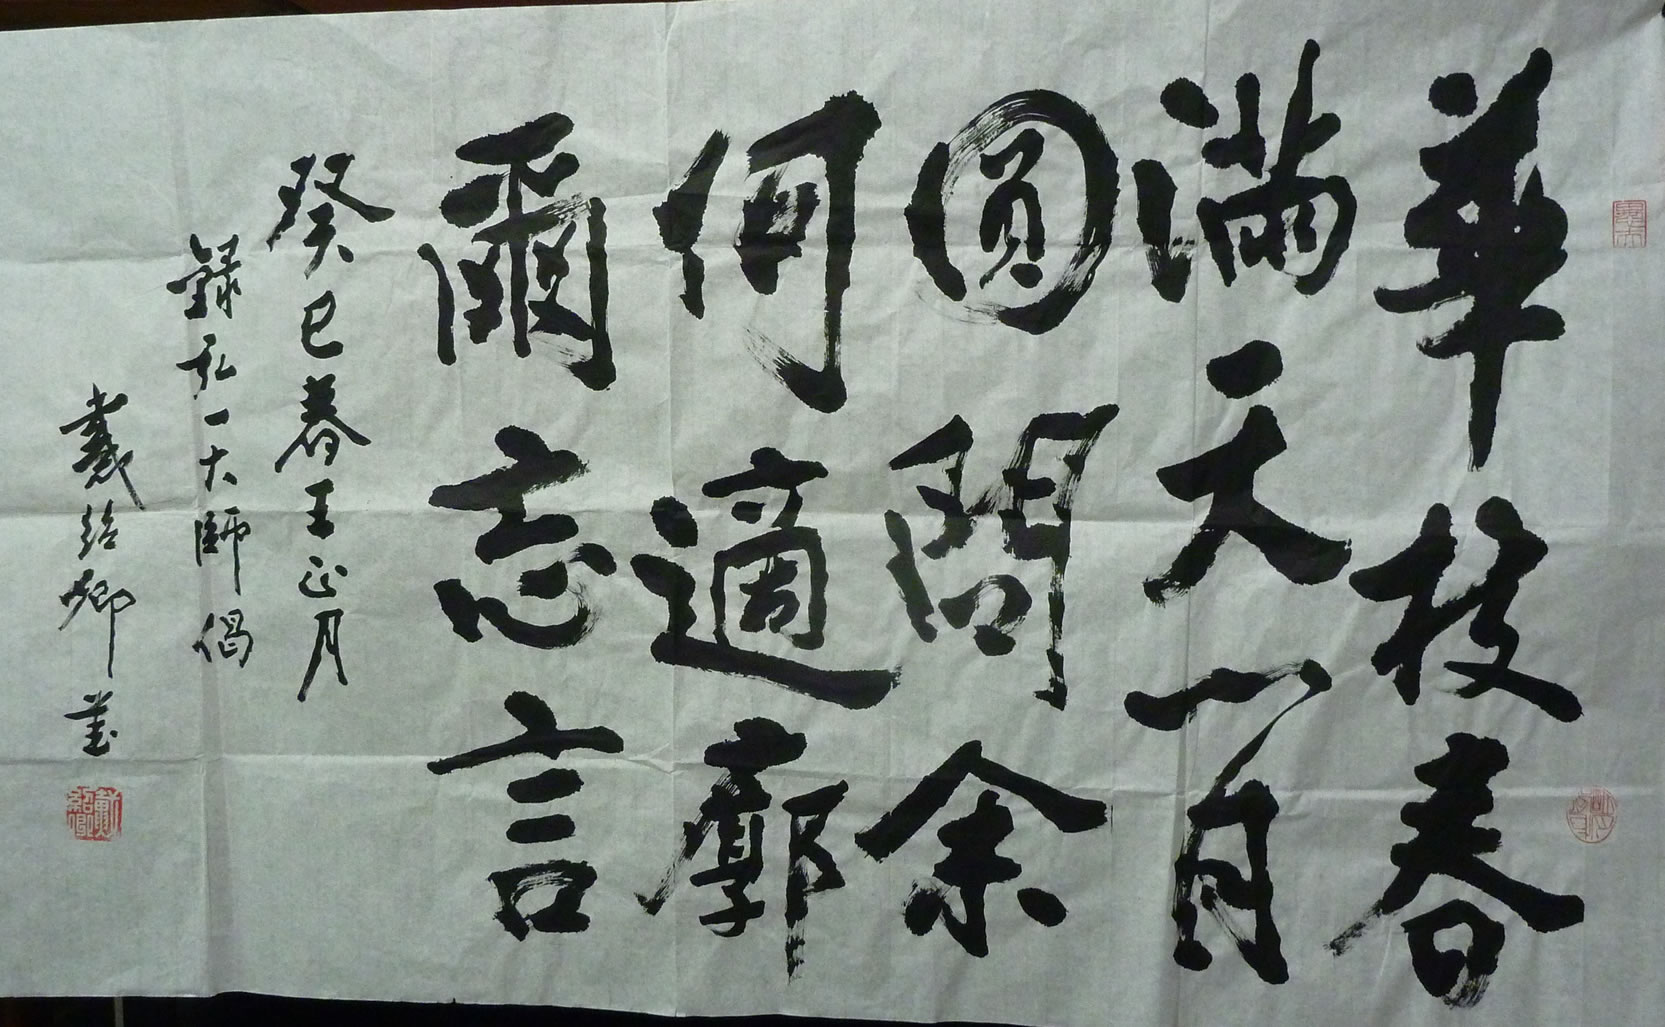 華枝春
滿天心月
圓問余
何適廓
爾忘言
癸巳春王正月
錄弘一大師偈
戴紹卿